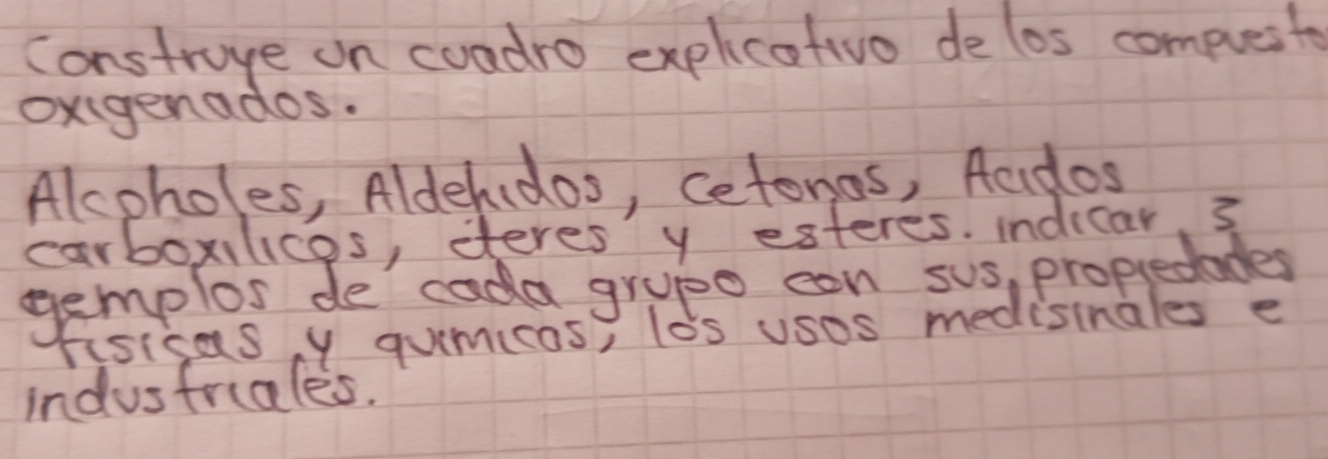 Construye un cuadro explicativo de los compuesto
oxigenados.
Alcoholes, Aldehidos, cetonas, Acidos
carboxilicos, eteres y esteres. indicar 3
ejemplos de cada grupo con sus propiedades
fisicas y quimicas, los usos medisinales e
industriales.